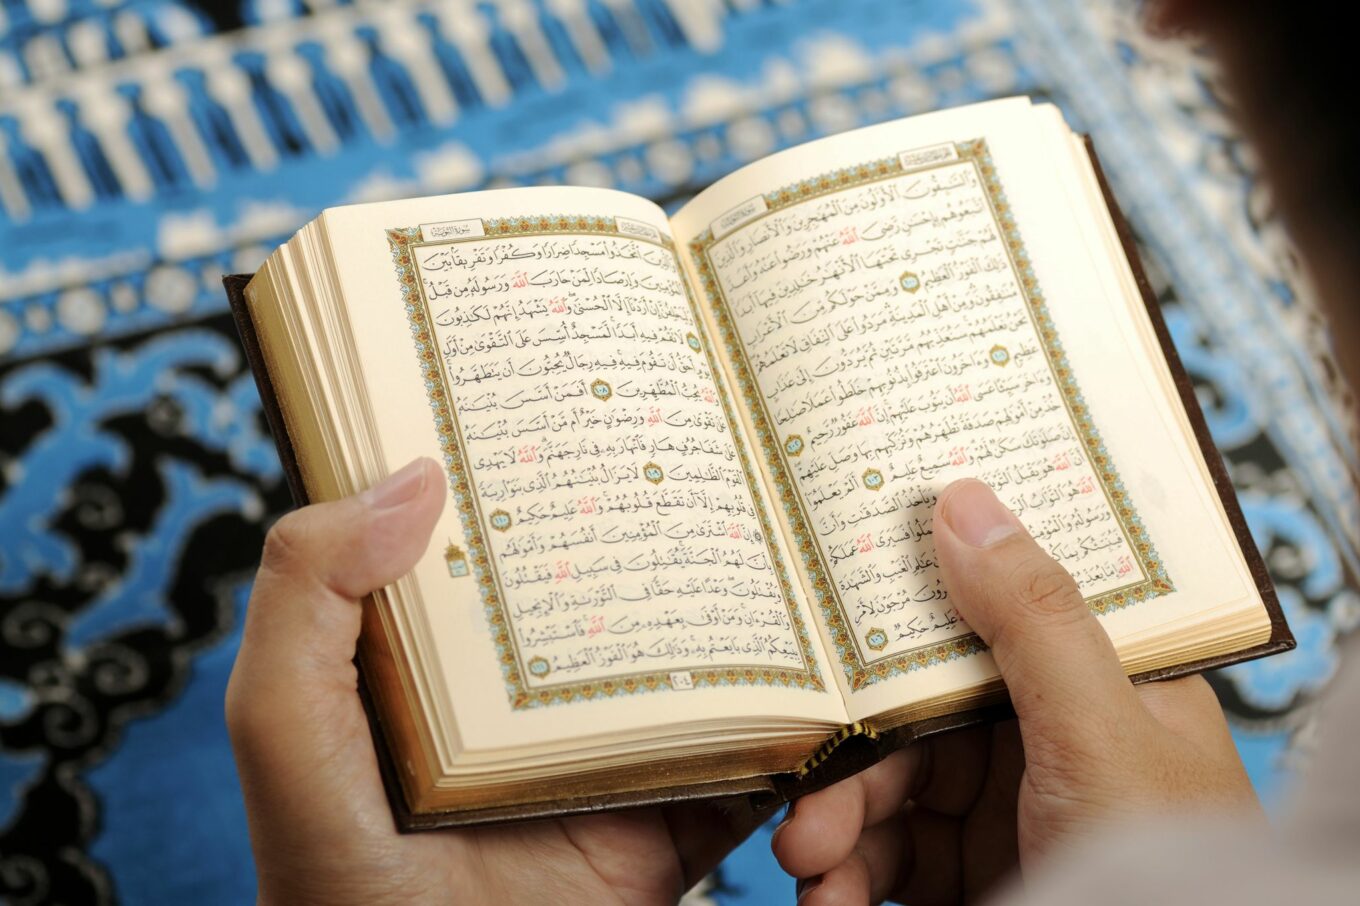 وَٱلسَّٰبِقُونَ ٱلْأَوَّلُونَ مِنَ ٱلْمُهَٰجِرِينَ وَٱلْأَنصَارِ وَٱلَّذِينَ
ٱتَّبَعُوهُم بِإِحْسَٰنٍ رَّضِىَ ٱللَّهُ عَنْهُمْ وَرَضُوا۟ عَنْهُ وَأَعَدَّ
لَهُمْ جَنَّٰتٍ تَجْرِى تَحْتَهَا ٱلْأَنْهَٰرُ خَٰلِدِينَ فِيهَآ أَبَدًا
ذَٰلِكَ ٱلْفَوْزُ ٱلْعَظِيمُ ١٠٠ وَمِمَّنْ حَوْلَكُم مِّنَ ٱلْأَعْرَابِ
مُنَٰفِقُونَ وَمِنْ أَهْلِ ٱلْمَدِينَةِ مَرَدُوا۟ عَلَى ٱلنِّفَاقِ لَا تَعْلَمُهُمْ
نَحْنُ نَعْلَمُهُمْ سَنُعَذِّبُهُم مَّرَّتَيْنِ ثُمَّ يُرَدُّونَ إِلَىٰ عَذَابٍ
عَظِيمٍ ١٠١ وَءَاخَرُونَ ٱعْتَرَفُوا۟ بِذُنُوبِهِمْ خَلَطُوا۟ عَمَلًا صَٰلِحًا
وَءَاخَرَ سَيِّئًا عَسَى ٱللَّهُ أَن يَتُوبَ عَلَيْهِمْ إِنَّ ٱللَّهَ غَفُورٌ رَّحِيمٌ ١٠٢
خُذْ مِنْ أَمْوَٰلِهِمْ صَدَقَةً تُطَهِّرُهُمْ وَتُزَكِّيهِم بِهَا وَصَلِّ عَلَيْهِمْ
إِنَّ صَلَوٰتَكَ سَكَنٌ لَّهُمْ وَٱللَّهُ سَمِيعٌ عَلِيمٌ ١٠٣ أَلَمْ يَعْلَمُوٓا۟
أَنَّ ٱللَّهَ هُوَ يَقْبَلُ ٱلتَّوْبَةَ وَيَأْخُذُ ٱلصَّدَقَٰتِ وَأَنَّ
ٱللَّهَ هُوَ ٱلتَّوَّابُ فَسَيَرَى ٱللَّهُ عَمَلَكُمْ
وَرَسُولُهُۥ وَٱلْمُؤْمِنُونَ عَٰلِمِ ٱلْغَيْبِ وَٱلشَّهَٰدَةِ
فَيُنَبِّئُكُم بِمَا مُرْجَوْنَ لِأَمْرِ
ٱللَّهِ إِمَّا يُعَذِّبُهُمْ عَلِيمٌ حَكِيمٌ ١٠٦
سُورَةُ التَّوْبَةِ
ٱتَّخَذُوا۟ مَسْجِدًا ضِرَارًا وَكُفْرًا وَتَفْرِيقًۢا بَيْنَ
وَإِرْصَادًا لِّمَنْ حَارَبَ ٱللَّهَ وَرَسُولَهُۥ مِن قَبْلُ
إِنْ أَرَدْنَآ إِلَّا ٱلْحُسْنَىٰ وَٱللَّهُ يَشْهَدُ إِنَّهُمْ لَكَٰذِبُونَ
١٠٧ تَقُمْ فِيهِ أَبَدًا لَّمَسْجِدٌ أُسِّسَ عَلَى ٱلتَّقْوَىٰ مِنْ أَوَّلِ
أَحَقُّ أَن تَقُومَ فِيهِ فِيهِ رِجَالٌ يُحِبُّونَ أَن يَتَطَهَّرُوا۟
وَٱللَّهُ يُحِبُّ ٱلْمُطَّهِّرِينَ ١٠٨ أَفَمَنْ أَسَّسَ بُنْيَٰنَهُۥ
عَلَىٰ تَقْوَىٰ مِنَ ٱللَّهِ وَرِضْوَٰنٍ خَيْرٌ أَم مَّنْ أَسَّسَ بُنْيَٰنَهُۥ
عَلَىٰ شَفَا جُرُفٍ هَارٍ فَٱنْهَارَ بِهِۦ فِى نَارِ جَهَنَّمَ وَٱللَّهُ لَا يَهْدِى
ٱلْقَوْمَ ٱلظَّٰلِمِينَ ١٠٩ لَا يَزَالُ بُنْيَٰنُهُمُ ٱلَّذِى بَنَوْا۟ رِيبَةً
فِى قُلُوبِهِمْ إِلَّآ أَن تَقَطَّعَ قُلُوبُهُمْ وَٱللَّهُ عَلِيمٌ حَكِيمٌ ١١٠
۞ إِنَّ ٱللَّهَ ٱشْتَرَىٰ مِنَ ٱلْمُؤْمِنِينَ أَنفُسَهُمْ وَأَمْوَٰلَهُم
بِأَنَّ لَهُمُ ٱلْجَنَّةَ يُقَٰتِلُونَ فِى سَبِيلِ ٱللَّهِ فَيَقْتُلُونَ
وَيُقْتَلُونَ وَعْدًا عَلَيْهِ حَقًّا فِى ٱلتَّوْرَىٰةِ وَٱلْإِنجِيلِ
وَٱلْقُرْءَانِ وَمَنْ أَوْفَىٰ بِعَهْدِهِۦ مِنَ ٱللَّهِ فَٱسْتَبْشِرُوا۟
بِبَيْعِكُمُ ٱلَّذِى بَايَعْتُم بِهِۦ وَذَٰلِكَ هُوَ ٱلْفَوْزُ ٱلْعَظِيمُ ١١١
٢٠٤